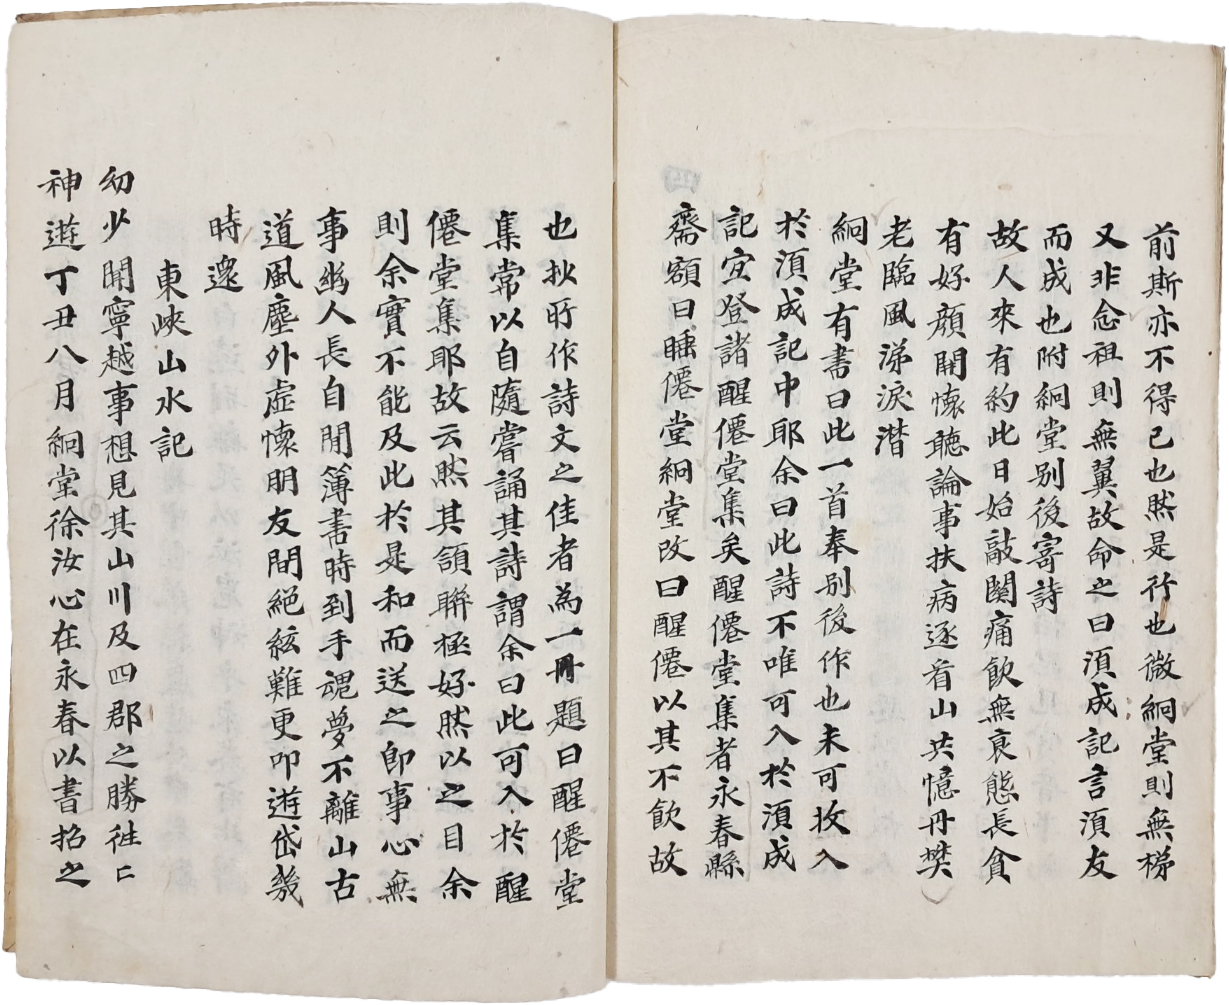 前斯亦不得已也然是行也微絅堂則無梯
又非念祖則無翼故命之曰湏成記言湏友
而成也附絅堂别後寄詩
故人來有約此日始敲關痛飮無衰態長貪
有好顔開懷聽論事扶病逐看山共憶丹樊
老臨風涕淚潸
絅堂有書曰此一首奉别後作也未可攷入
於湏成記中耶余曰此詩不唯可入於湏成
記宜登諸醒僊堂集矣醒僊堂集者永春縣
齋額曰睡僊堂絅堂改曰醒僊以其不飮故
也抄所作詩文之佳者為一冊題曰醒僊堂
集常以自隨嘗誦其詩謂余曰此可入於醒
僊堂集耶故云然其頷聯極好然以之目余
則余實不能及此於是和而送之卽事心無
事幽人長自閒簿書時到手魂夢不離山古
道風塵外虛懷朋友間絕絃難更叩遊岱幾
時還
東峽山水記
幼少聞寧越事想見其山川及四郡之勝徃〻
神遊丁丑八月絅堂徐汝心在永春以書招之